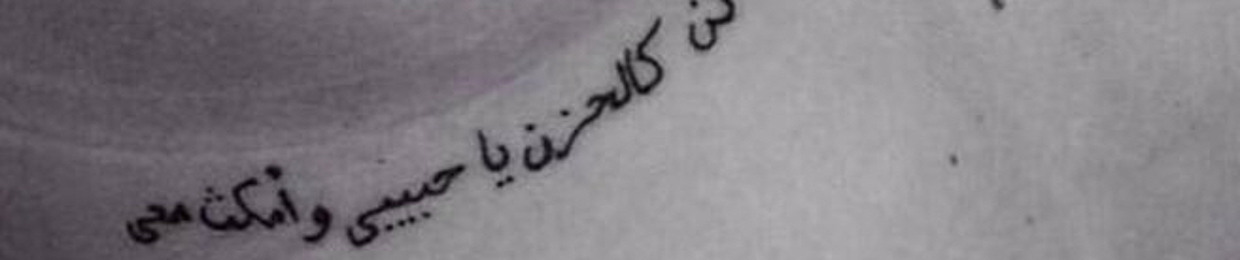 كن كالحزن يا حبيبي و أمكث معي